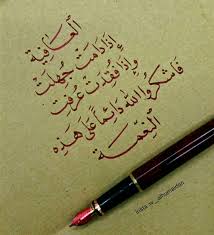 العافية
إذا دامت جهلت
وإذا فقدت عرفت
فاشكروا الله دائماً على هذه
النعمة